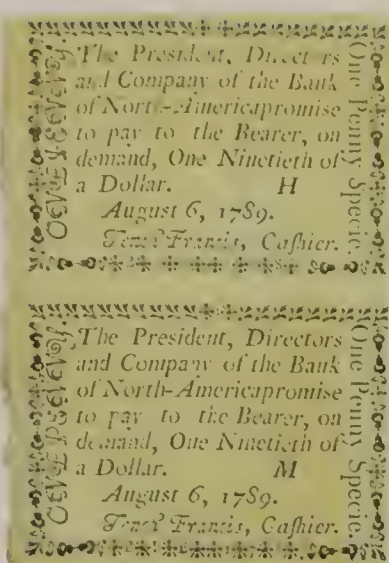 The President, Directors
and Company of the Bank
of North-Americapromise
to pay to the Bearer, on
demand, One Ninetieth of
a Dollar. H
August 6, 1789.
Tench Francis, Cashier.
One Penny Specie.
The President, Directors
and Company of the Bank
of North-Americapromise
to pay to the Bearer, on
demand, One Ninetieth of
a Dollar. M
August 6, 1789.
Tench Francis, Cashier.
One Penny Specie.